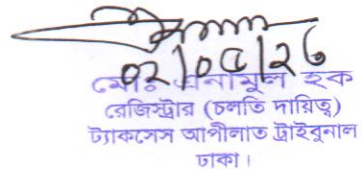 ০২/০৫/২৬
মোঃ এনামুল হক
রেজিস্ট্রার (চলতি দায়িত্ব)
ট্যাকসেস আপীলাত ট্রাইবুনাল
ঢাকা।